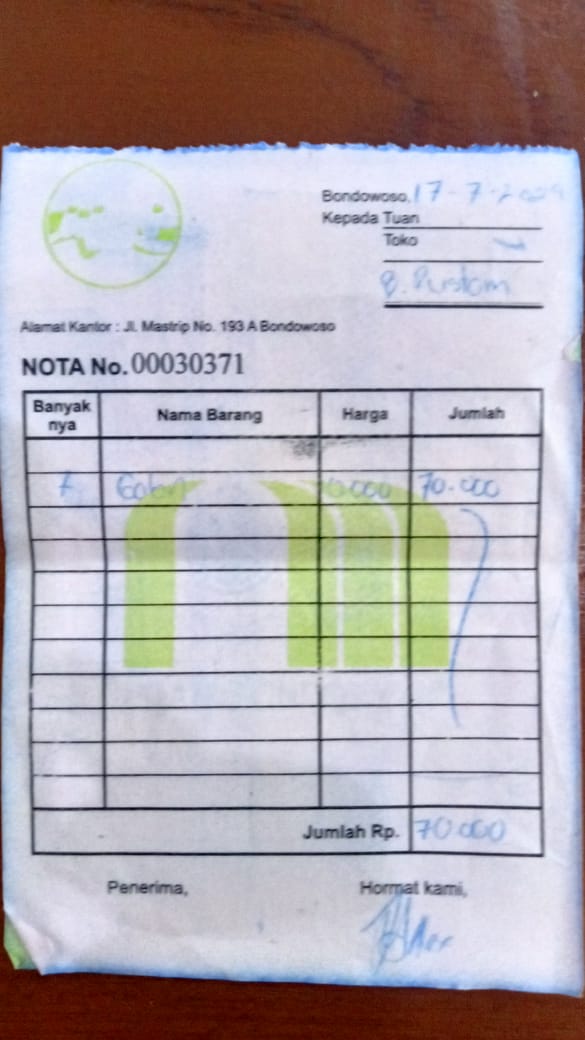 Bondowoso, 17-7-2024
Kepada Tuan
Toko
B. Rustam
Alamat Kantor : Jl. Mastrip No. 193 A Bondowoso
NOTA No. 00030371
Banyak nya Nama Barang Harga Jumlah
Galon 70.000
Jumlah Rp. 70.000
Penerima, Hormat kami,